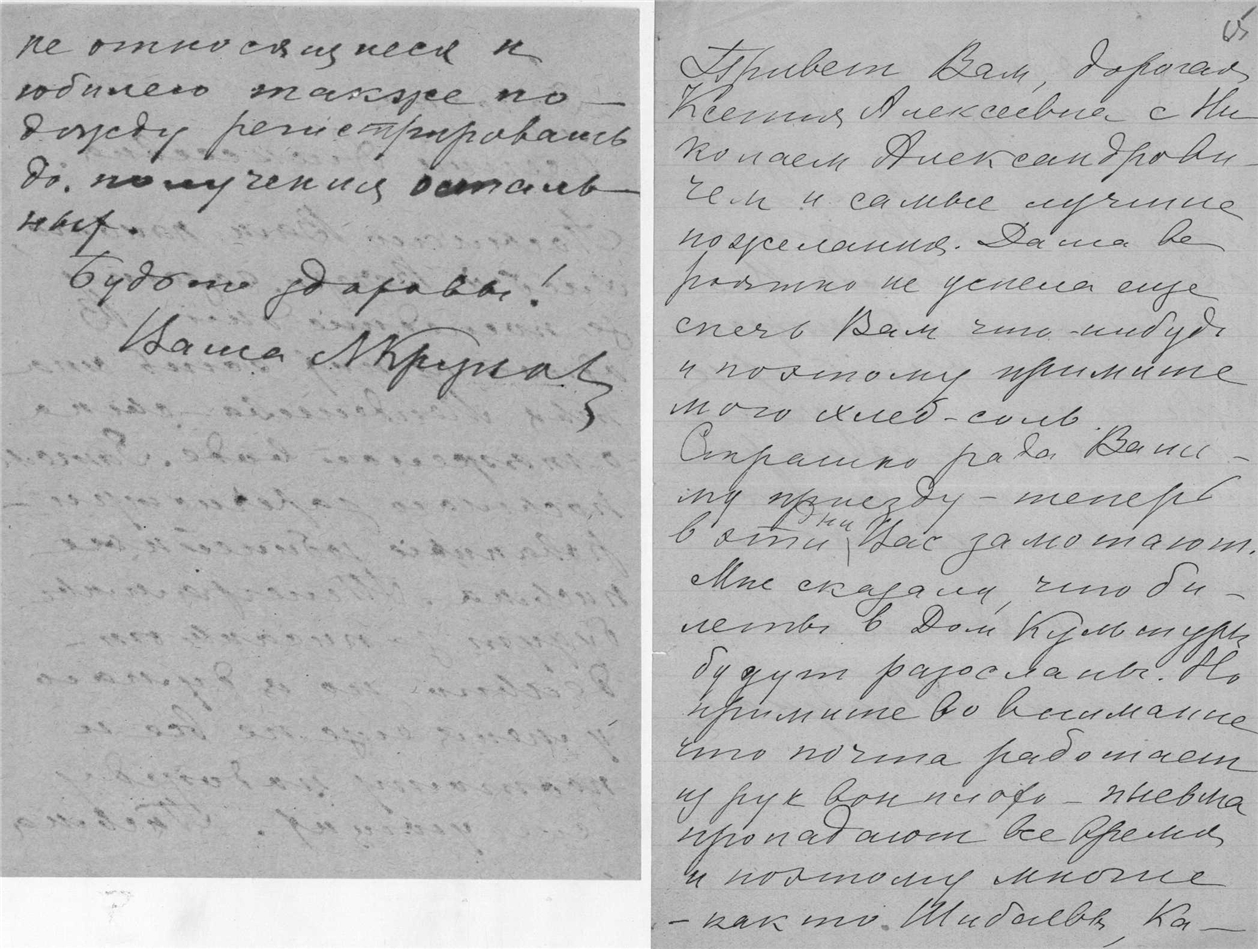 не относящиеся к
юбилею также по-
дожду регистрировать
до получения осталь-
ных.
Будьте здоровы!
Ваша
Привет Вам, дорогая
Ксения Алексеевна с Ни
колаем Алексан­дрови
чем и самые лучшие
пожелания. Даша ве
роятно не успела еще
спечь Вам что-нибудь
и поэтому примите
мого хлеб-соль.
Страшно рада Ваше-
му приезду - теперь
в эти дни Вас замотают.
Мне сказали, что би-
леты в Дом Культуры
будут разосланы. Но
примите во внимание
что почта работает
из рук вон плохо - письма
пропадают все время
и поэтому многие
- как то Шибаевы, Ка-